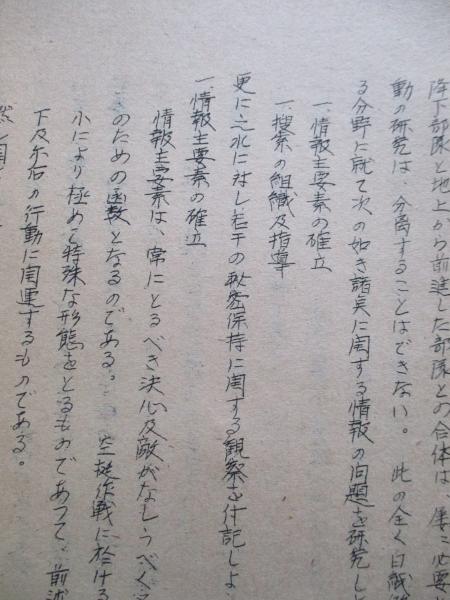 降下部隊と地上から前進した部隊との合体は、屡々必要と
動の研究は、分離することはできない。 此の全く白紙的
る分野に就て次の如き諸点に関する情報の问題を研究し
一、情報主要素の確立
一、捜索の組織及指導
更に之れに対し若干の秘密保持に関する観察を付記しよ
一、情報主要素の確立
情報主要素は、常にとるべき決心及敵がなしうべく
のための函数となるのである。 空挺作戦に於ける
小により極めて特殊な形態をとるものであつて、前述
下及尓后の行動に関連するものである。